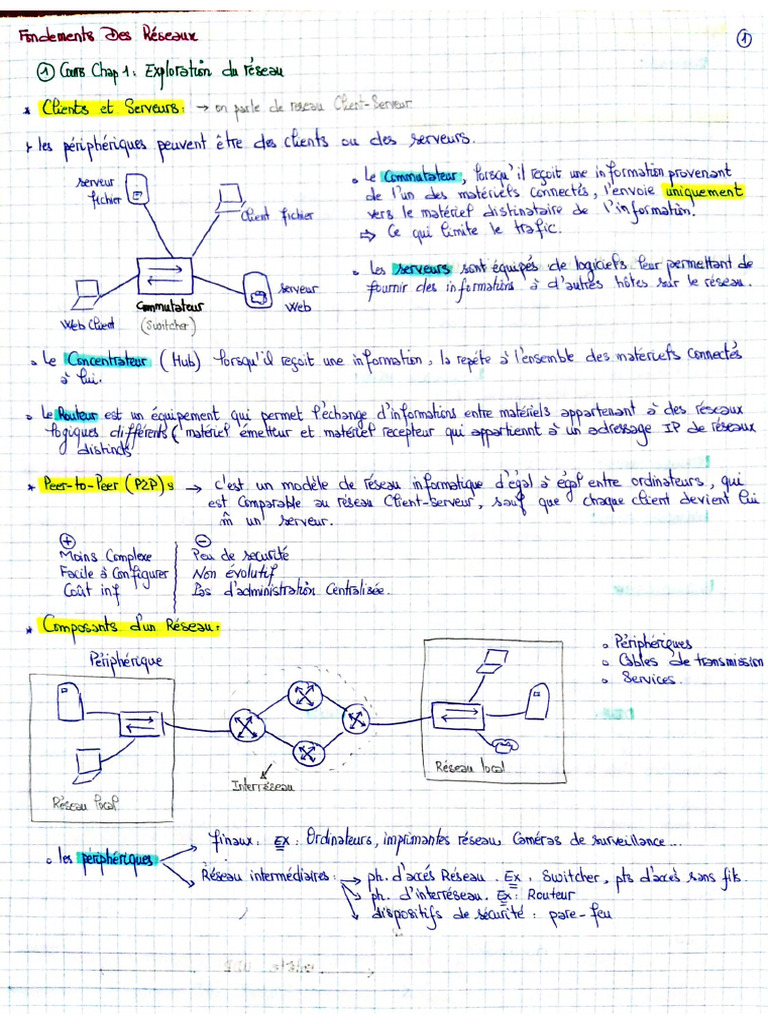 Fondements Des Réseaux
1
① Cours Chap 1: Exploration du réseau
* Clients et Serveurs: → on parle de reseau Client-Serveur
les périphériques peuvent être des clients ou des serveurs.
serveur fichier
Client fichier
Commutateur
(Switcher)
Web Client
serveur Web
• Le Commutateur, lorsqu'il reçoit une information provenant
de l'un des matériels connectés, l'envoie uniquement
vers le matériel distinataire de l'information.
⇒ Ce qui limite le trafic.
• Les serveurs sont équipés de logiciels leur permettant de
fournir des informations à d'autres hôtes sur le réseau.
• Le Concentrateur (Hub) lorsqu'il reçoit une information, la repéte à l'ensemble des matériels connectés
à lui.
• Le Routeur est un équipement qui permet l'échange d'informations entre matériels appartenant à des réseaux
logiques différents (matériel émetteur et matériel recepteur qui appartiennt à un adressage IP de réseaux
distincts
* Peer-to-Peer (P2P): → c'est un modèle de réseau informatique d'égal à égal entre ordinateurs, qui
est Comparable au réseau Client-Serveur, sauf que chaque client devient lui
m̂ un serveur.
⊕
Moins Complexe
Facile à Configurer
Coût inf
⊖
Peu de securité
Non évolutif
Pas d'administration Centralisée.
* Composants d'un Réseau:
• Périphériques
• Cables de transmission
• Services.
Périphérique
Réseau local
Interréseau
Réseau local
• les périphériques
→ finaux: Ex: Ordinateurs, imprimantes réseau, Caméras de surveillance...
→ Réseau intermédiaires: → ph. d'accés Réseau. Ex: Switcher, pts d'accés sans fils.
→ ph. d'interréseau. Ex: Routeur
→ dispositifs de sécurité: pare-feu